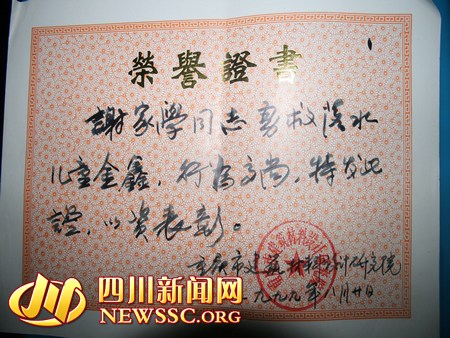 榮譽證書
謝家學同志勇救落水
儿童金鑫，行为高尚，特发此
證，以资表彰。
重慶市建筑材料设计研究院
一九九九年八月廿日
四川新闻网
NEWSSC.ORG